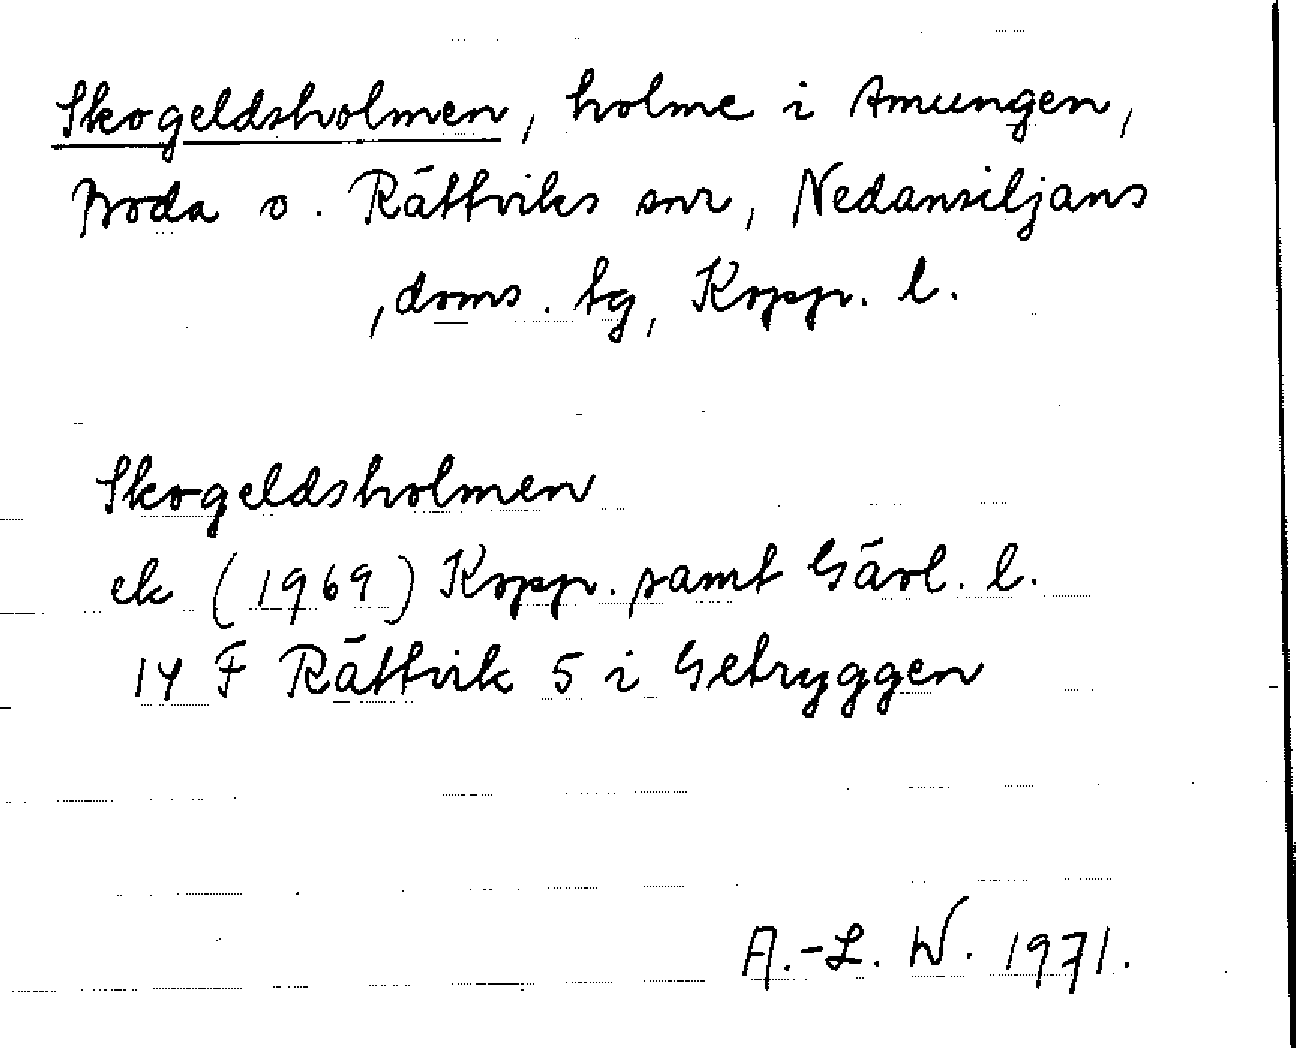 Skogeldsholmen, holme i Amungen,
Boda o. Rättviks snr, Nedansiljans
, doms. tg, Kopp. l.
Skogeldsholmen
ek (1969) Kopp. samt Gävl. l.
14 F Rättvik 5 i Getryggen
A.-L. W. 1971.